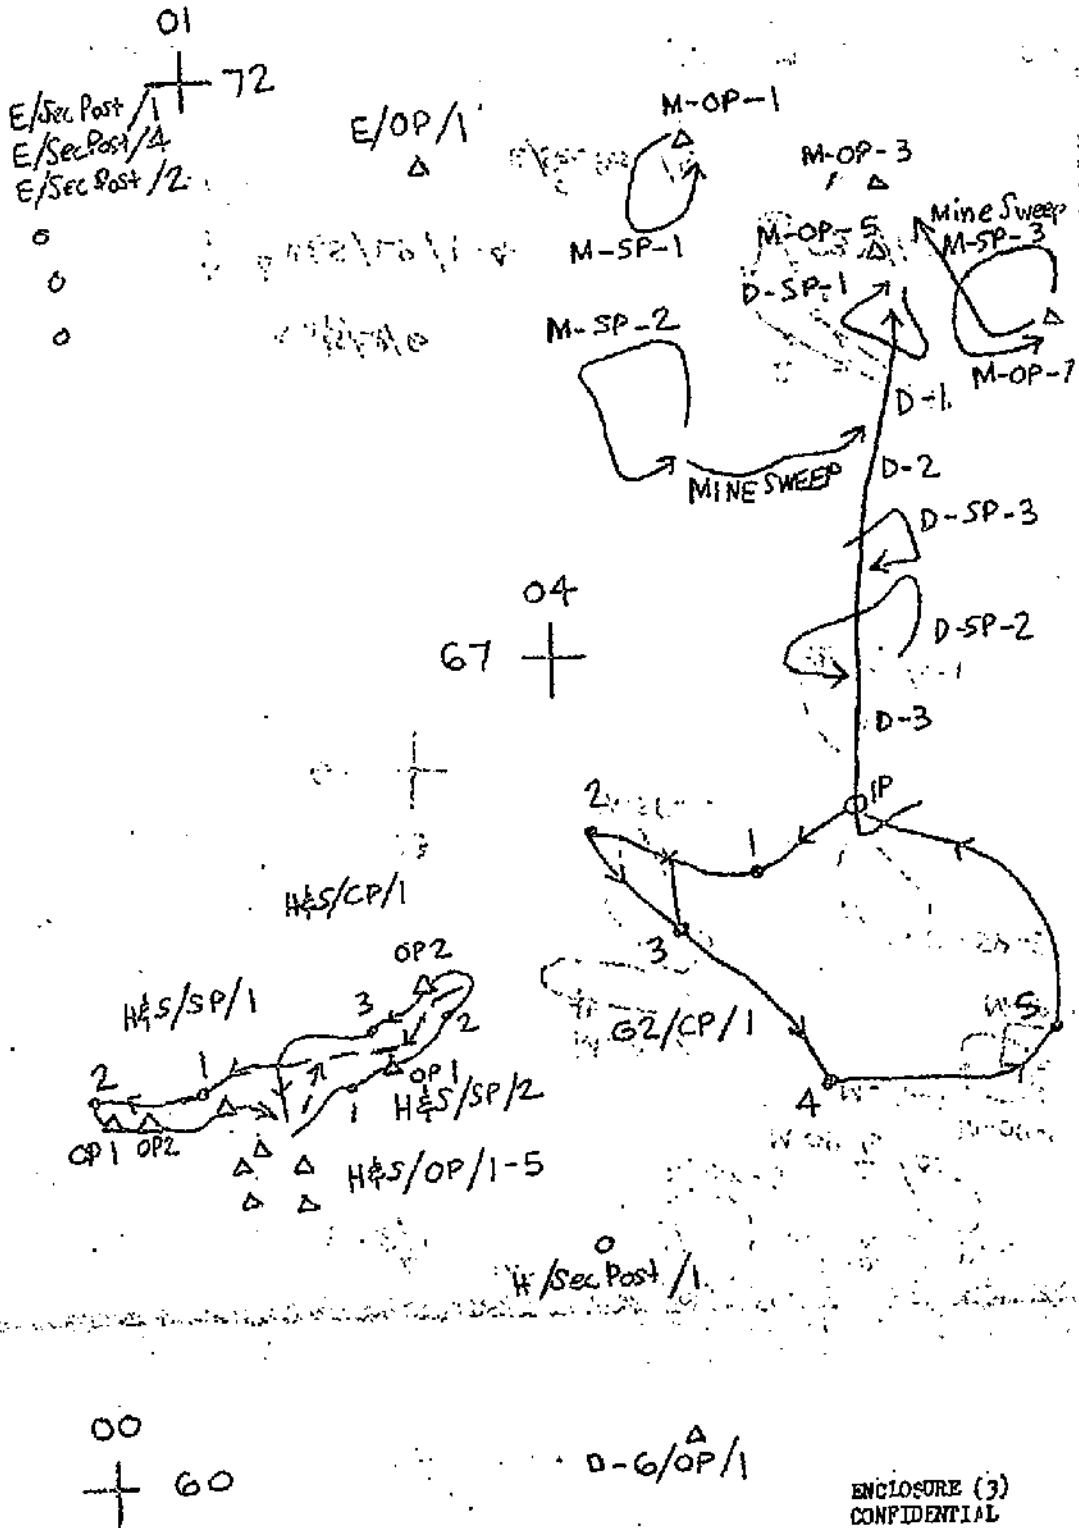 01
72
E/Sec Post 1
E/SecPost/4
E/Sec Post/2
E/OP/1
M-OP-1
M-OP-3
M-SP-1
M-OP-5
Mine Sweep
M-SP-3
D-SP-1
M-SP-2
M-OP-7
D-1
MINE SWEEP
D-2
D-SP-3
04
67
D-SP-2
D-3
IP
2
1
H&S/CP/1
3
OP2
H&S/SP/1
3
2
G2/CP/1
5
2
1
OP1
1
H&S/SP/2
4
OP1 OP2
H&S/OP/1-5
H/Sec Post/1
00
60
D-6/OP/1
ENCLOSURE (3)
CONFIDENTIAL